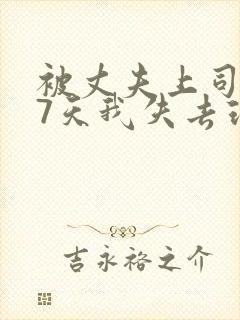 被丈夫上司
7天我失去
吉永裕之介